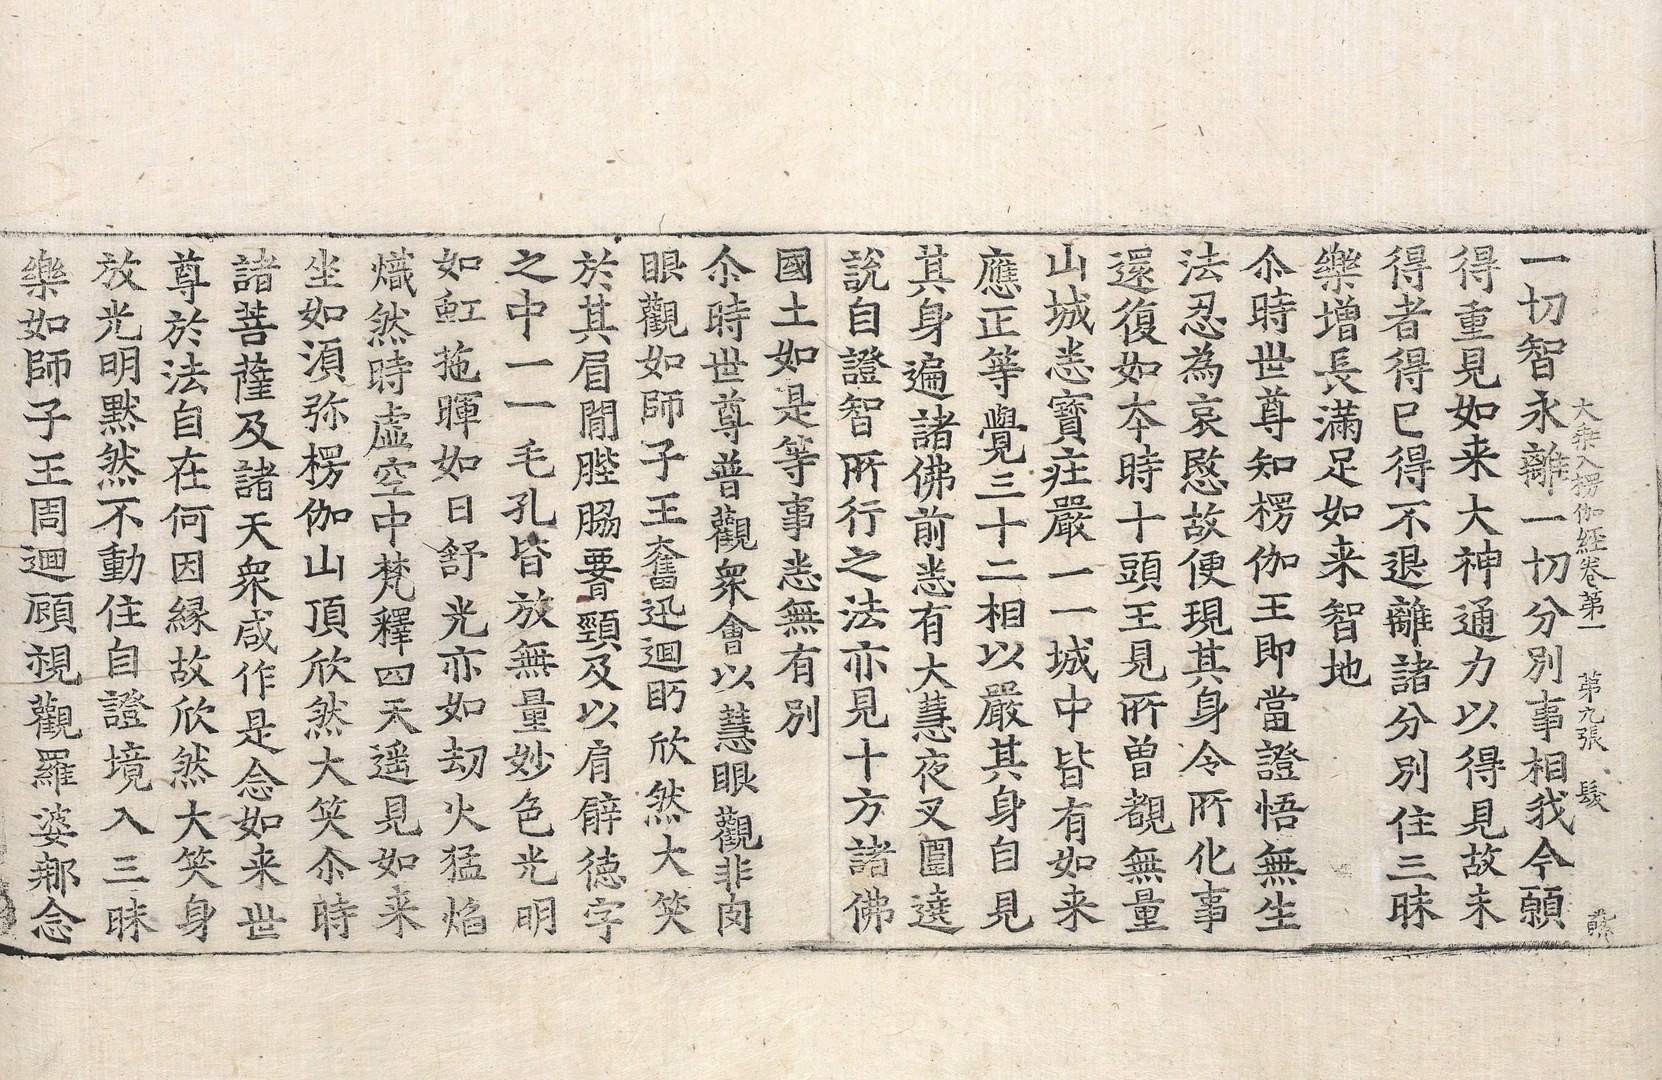 大乘入楞伽經卷第一　第九張　髮
一切智永離一切分別事相我今願
得重見如来大神通力以得見故未
得者得已得不退離諸分別住三昧
樂增長滿足如来智地
尒時世尊知楞伽王即當證悟無生
法忍為哀愍故便現其身令所化事
還復如本時十頭王見所曾覩無量
山城悉寶庄嚴一一城中皆有如来
應正等覺三十二相以嚴其身自見
其身遍諸佛前悉有大慧夜叉圍遶
說自證智所行之法亦見十方諸佛
國土如是等事悉無有別
尒時世尊普觀衆會以慧眼觀非肉
眼觀如師子王奮迅迴眄欣然大笑
於其眉間髀脇要頸及以肩臂德字
之中一一毛孔皆放無量妙色光明
如虹拖暉如日舒光亦如劫火猛焰
熾然時虛空中梵釋四天遥見如来
坐如湏弥楞伽山頂欣然大笑尒時
諸菩薩及諸天衆咸作是念如来世
尊於法自在何因緣故欣然大笑身
放光明默然不動住自證境入三昧
樂如師子王周迴顧視觀羅婆那念